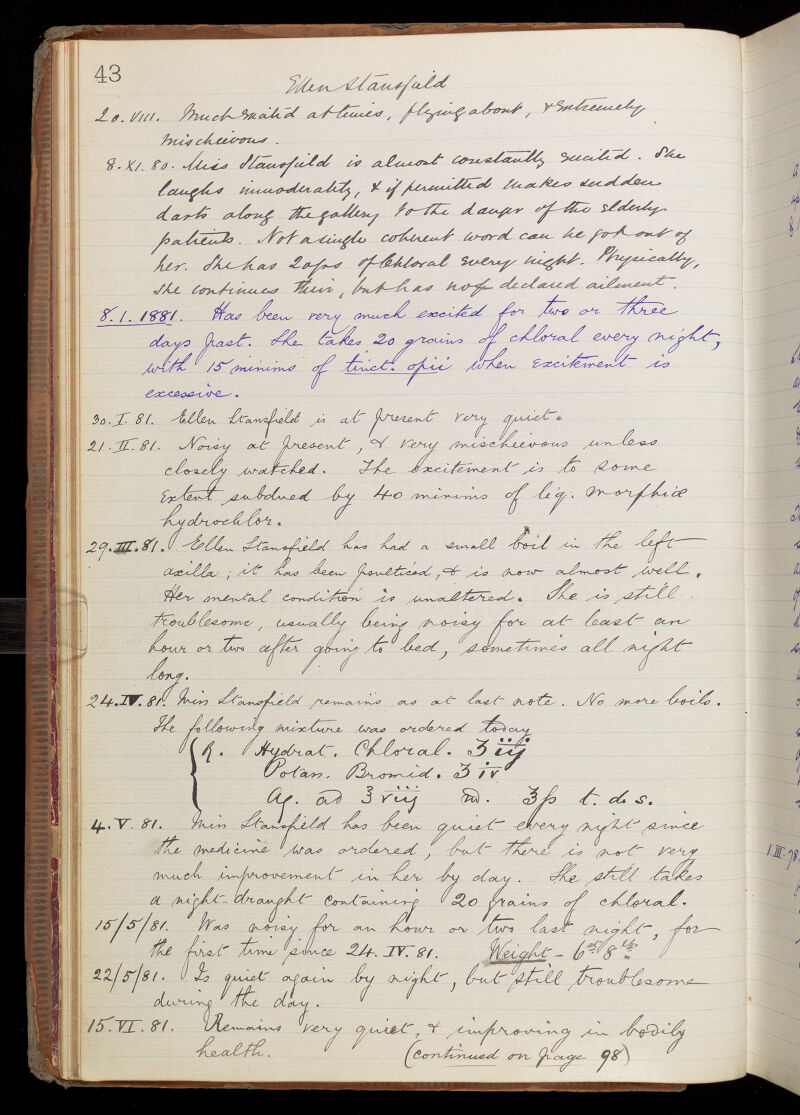 43
Ellen Stansfield
20.VIII. Much excited at times, flying about, & extremely
mischievous.
8.XI.80. Miss Stansfield is almost constantly excited. She
laughs immoderately, & if permitted makes sudden
darts along the gallery to the danger of the elderly
patients. Not a single coherent word can be got out of
her. She has 20grs of Chloral every night. Physically,
she continues thin, but has no declared ailment.
8.1.1881. Has been very much excited for two or three
days past. She takes 20 grains of chloral every night,
with 15 minims of tinct. opii when excitement is
excessive.
30.I.81. Ellen Stansfield is at present very quiet.
21.II.81. Noisy at present, & very mischievous unless
closely watched. The excitement is to some
extent subdued by 40 minims of liq. morphiæ
hydrochlor.
29.III.81. Ellen Stansfield has had a small boil in the left
axilla; it has been poulticed, & is now almost well.
Her mental condition is unaltered. She is still
troublesome, usually being noisy for at least an
hour or two after going to bed, sometimes all night
long.
24.IV.81. Miss Stansfield remains as at last note. No more boils.
The following mixture was ordered today
R. Hydrat. Chloral. ʒiij
Potass. Bromid. ʒiv
Aq. ad ℥viij m. ℥ss t. d. s.
4.V.81. Miss Stansfield has been quiet every night since
the medicine was ordered, but there is not very
much improvement in her by day. She still takes
a night-draught containing 20 grains of chloral.
15/5/81. Was noisy for an hour or two last night, for
the first time since 24.IV.81. Weight - 6st 8lb
22/5/81. Is quiet again by night, but still troublesome
during the day.
15.VI.81. Remains very quiet, & improving in bodily
health. (continued on page 98)
1.III.78